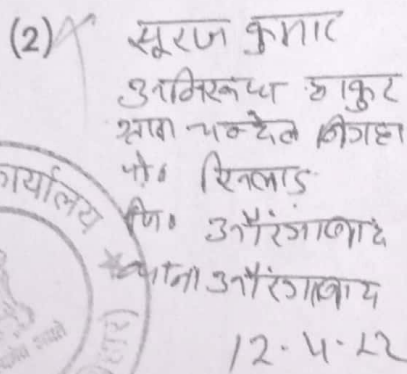 (2) सूरज कुमार
ठाकुर
ग्राम चन्देल बिगहा
पो॰
जि॰ औरंगाबाद
थाना औरंगाबाद
12.4.22
कार्यालय